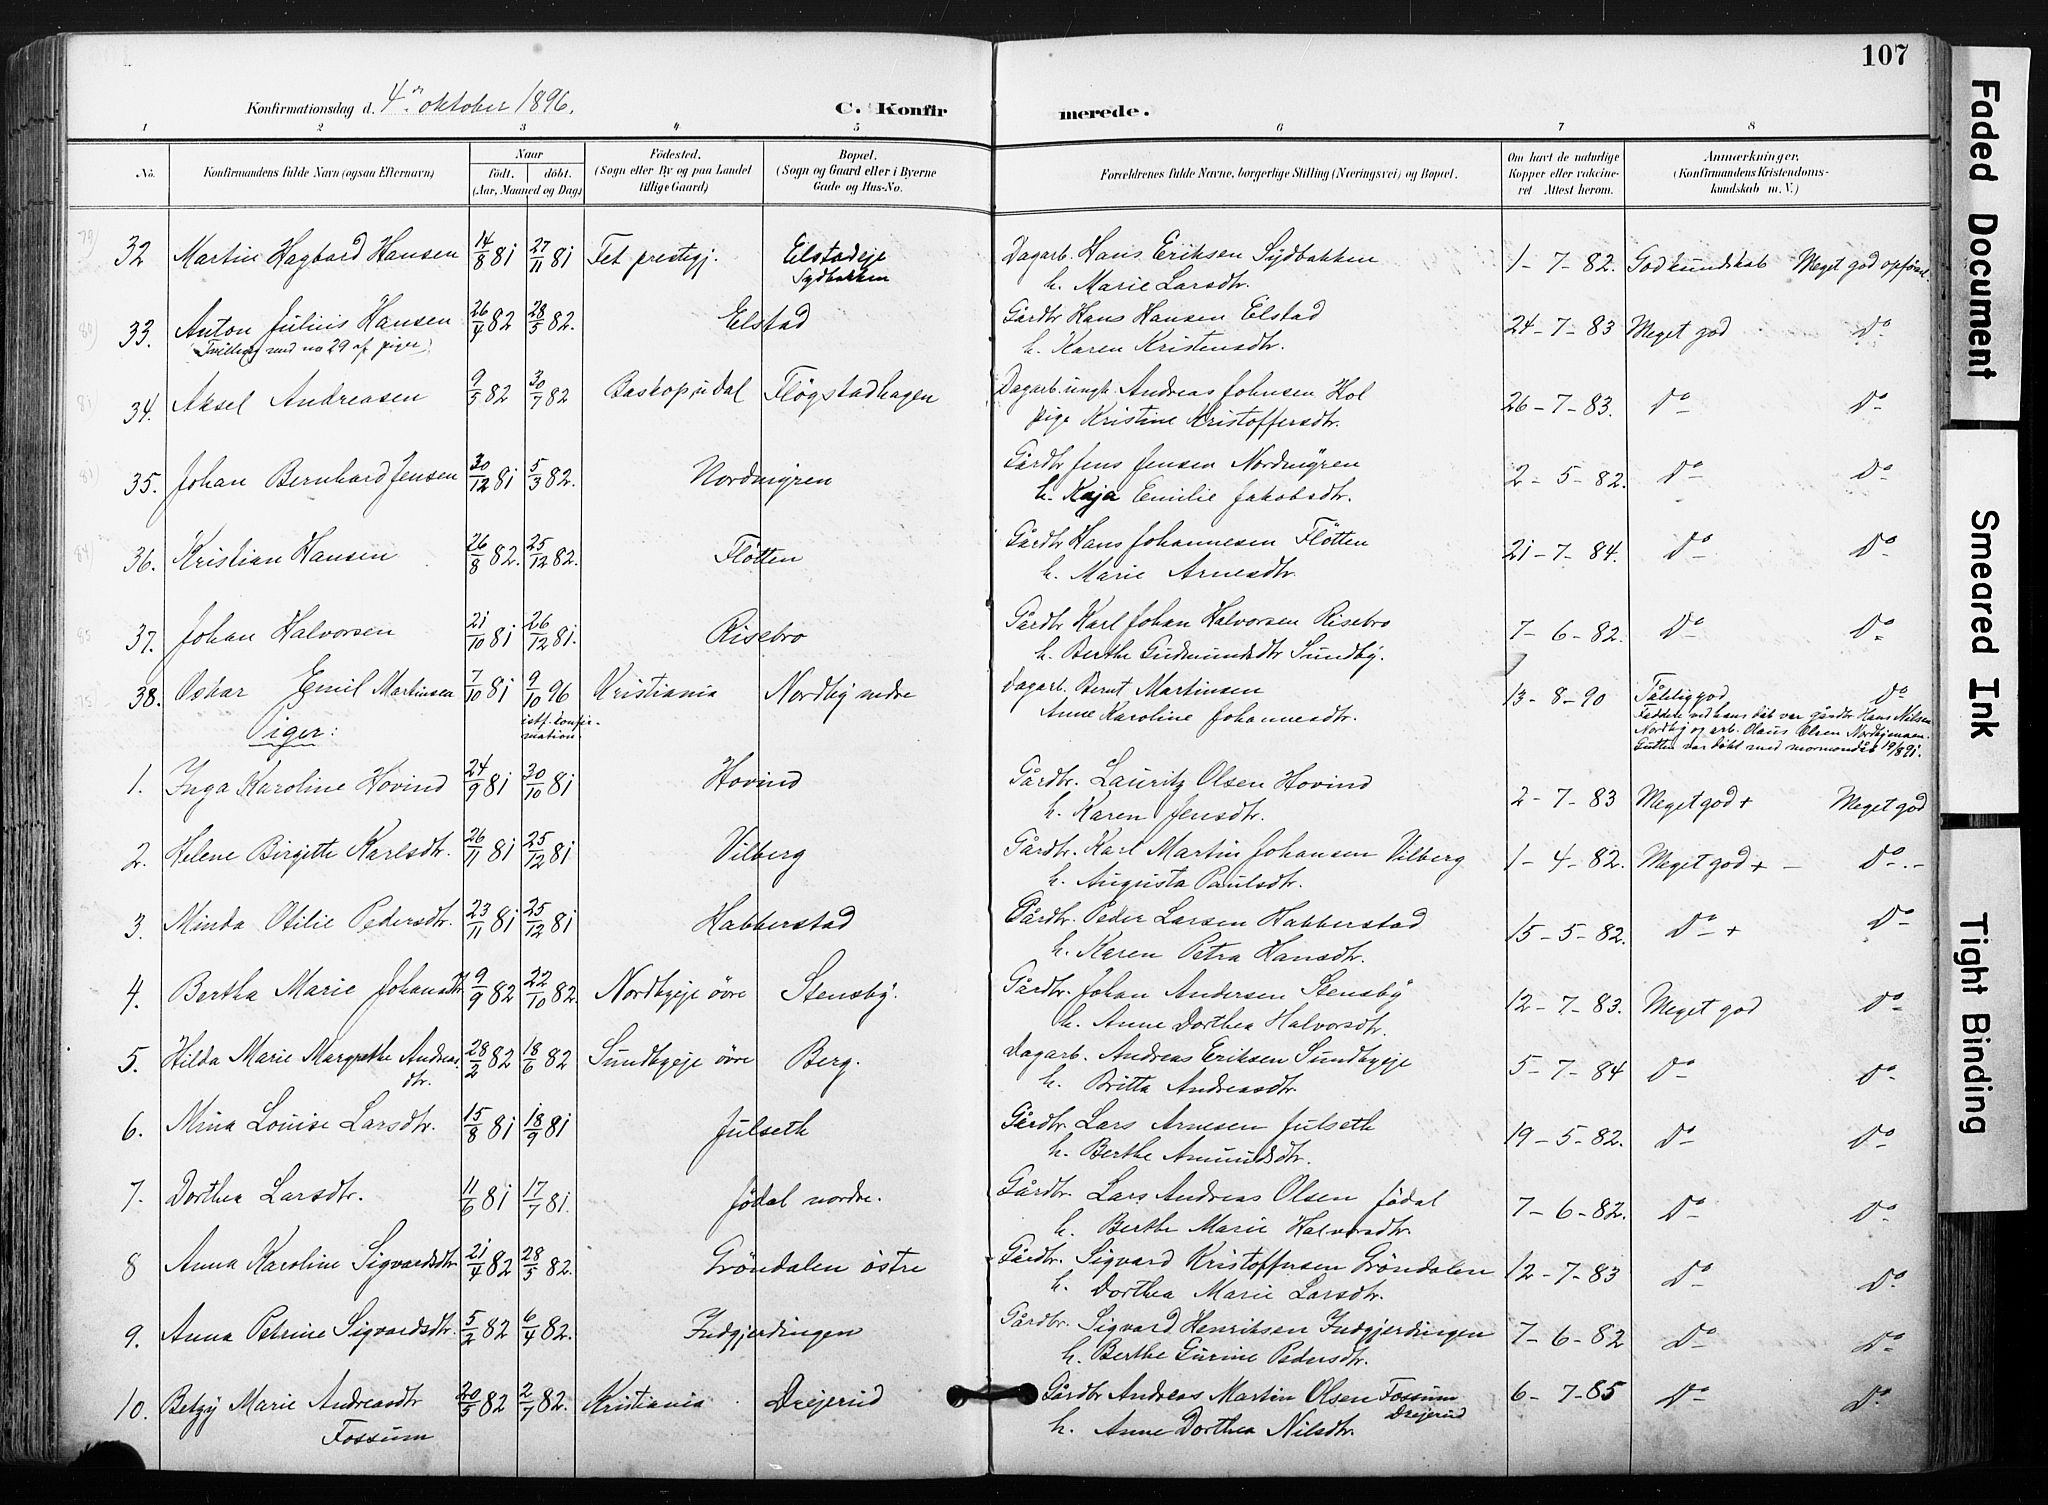 107
Konfirmationsdag d. 4de oktober 1896.
C. Konfir merede.
1 2 3 4 5 6 7 8
No.
Konfirmandens fulde Navn (ogsaa Efternavn)
Naar
født. døbt.
(Aar, Maaned og Dag)
Fødested.
(Sogn eller By og paa Landet
tillige Gaard)
Bopæl.
(Sogn og Gaard eller i Byerne
Gade og Hus-No.
Forældrenes fulde Navne, borgerlige Stilling (Næringsvei) og Bopæl.
Om havt de naturlige
Kopper eller vakcine-
ret Attest herom.
Anmærkninger,
(Konfirmandens Kristendoms-
kundskab m. V.)
32 Martin Hagbard Hansen 14/8 81 27/11 81 Fet prestgj. Elstadeje Sydbakken Dagarb. Hans Eriksen Sydbakken 1-7-82. God kundskab Meget god opførsel
h. Marie Larsdtr.
33. Anton Julius Hansen 26/4 82 28/5 82. Elstad Gårdbr Hans Hansen Elstad 24-7-83 Meget god Do
(Tvilling med no 29 af piger) h. Karen Kristensdtr.
34. Aksel Andreasen 9/5 82 30/7 82 Baskopsudal Fløgstadhagen Dagarb. ungk. Andreas Johnsen Hol 26-7-83. Do Do
pige Kristine Kristoffersdtr.
35. Johan Bernhard Jensen 30/12 81 5/3 82. Nordmyren Gårdbr Jens Jensen Nordmyren 2-5-82. Do Do
h. Kaja Emilie Jakobsdtr.
36. Kristian Hansen 26/8 82. 25/12 82. Fløtten Gårdbr Hans Johannesen Fløtten 21-7-84. Do Do
h. Marie Arnesdtr.
37. Johan Halvorsen 21/10 81 26/12 81. Risebro Gårdbr Karl Johan Halvorsen Risebro 7-6-82. Do Do
h. Berthe Gudmundsdtr Sundby.
38. Oskar Emil Martinsen 7/10 81 9/10 96 Kristiania Nordby nedre dagarb. Bernt Martinsen 13-8-90 Tålelig god, Do
istf. konfir-
mation. Anne Karoline Johannesdtr. Faddere ved hans dåb var gårdbr Hans Nilsen
Nordby og arb. Olaus Olsen
Gutten var døbt med mormondåb 19/8 91.
Piger:
1. Inga Karoline Hovind 24/9 81 30/10 81 Hovind Gårdbr. Lauritz Olsen Hovind 2-7-83 Meget god + Meget god
h. Karen Jensdtr.
2. Helene Birgitte Karlsdtr. 26/11 81 25/12 81 Vilberg Gårdbr. Karl Martin Johansen Vilberg 1-4-82. Meget god + - Do -
h. Augusta Paulsdtr.
3. Minda Otilie Pedersdtr. 23/11 81 25/12 81 Habberstad Gårdbr. Peder Larsen Habberstad 15-5-82. Do + Do
h. Karen Petra Hansdtr.
4. Bertha Marie Johansdtr 9/9 82 22/10 82. Nordbyeje øvre Stensby. Gårdbr. Johan Andersen Stensby 12-7-83. Meget god Do
h. Anne Dorthea Halvorsdtr.
5. Hilda Marie Margrethe Andreas- 28/2 82 18/6 82 Sundbyeje øvre Berg. Dagarb. Andreas Eriksen Sundbyeje 5-7-84 Do Do
dtr. h. Britta Andreasdtr.
6. Mina Louise Larsdtr. 15/8 81 18/9 81 Julseth Gårdbr. Lars Arnesen Julseth 19-5-82. Do Do
h. Berthe Amundsdtr.
7. Dorthea Larsdtr. 11/6 81 17/7 81. Jødal nordre. Gårdbr. Lars Andreas Olsen Jødal 7-6-82. Do Do
h. Berthe Marie Halvorsdtr.
8 Anna Karoline Sigvardsdtr 21/4 82 28/5 82. Grøndalen østre Gårdbr. Sigvard Kristoffersen Grøndalen 12-7-83 Do Do
h. Dorthea Marie Larsdtr.
9. Anna Petrine Sigvardsdtr. 5/2 82 6/4 82. Indgjerdingen Gårdbr. Sigvard Henriksen Indgjerdingen 7-6-82 Do Do
h. Berthe Gurine Pedersdtr.
10. Betzy Marie Andreasdtr 20/5 82 2/7 82. Kristiania Drejerud Gårdbr Andreas Martin Olsen Fossum 6-7-85 Do Do
Drejerud
Fossum h. Anne Dorthea Nilsdtr.
Faded Document
Smeared Ink
Tight Binding